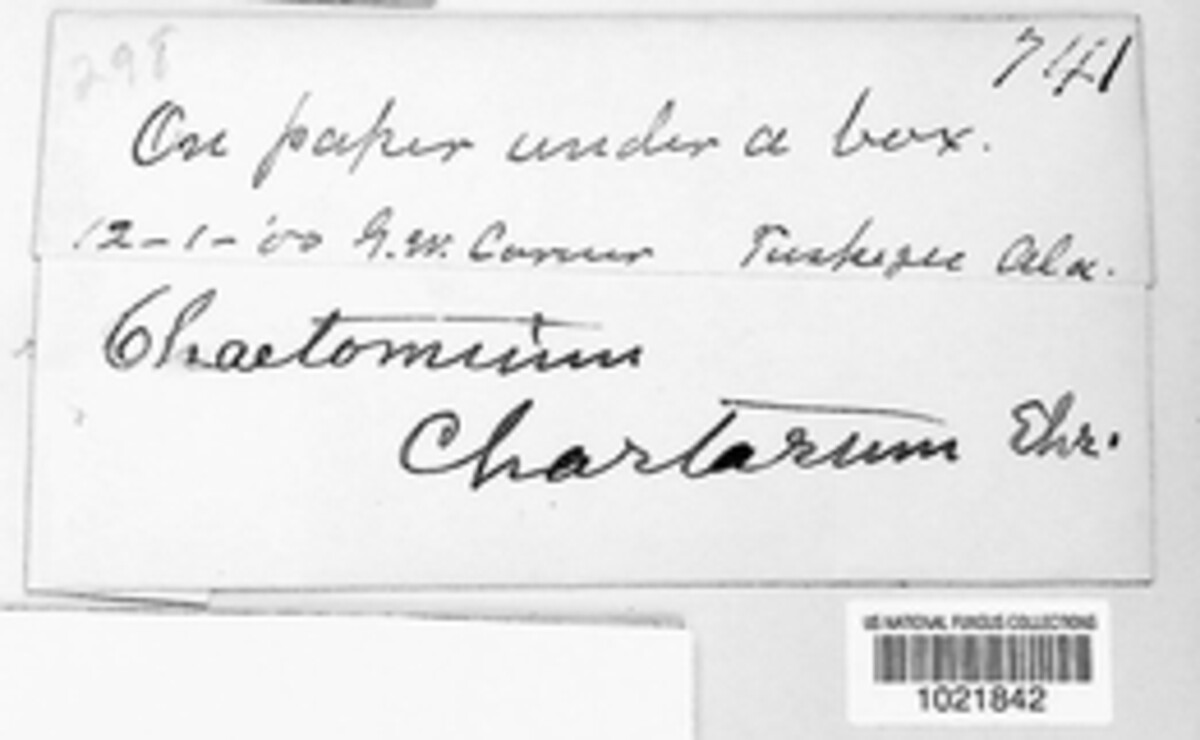 298 741
On paper under a box.
12-1-'00 G.W. Carver Tuskegee Ala.
Chaetomium
Chartarum Ehr.
US NATIONAL FUNGUS COLLECTIONS
1021842